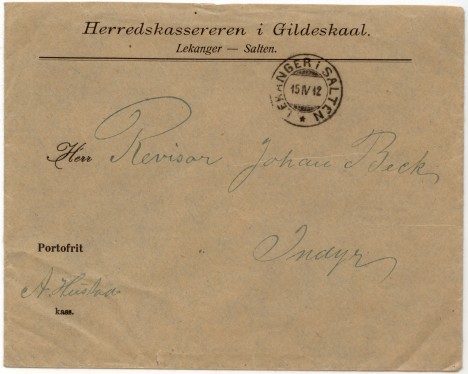 Herredskassereren i Gildeskaal.
Lekanger — Salten.
LEKANGER I SALTEN
15 IV 12
Herr Revisor Johan Beck
Indyr
Portofrit
A. Hustad
kass.